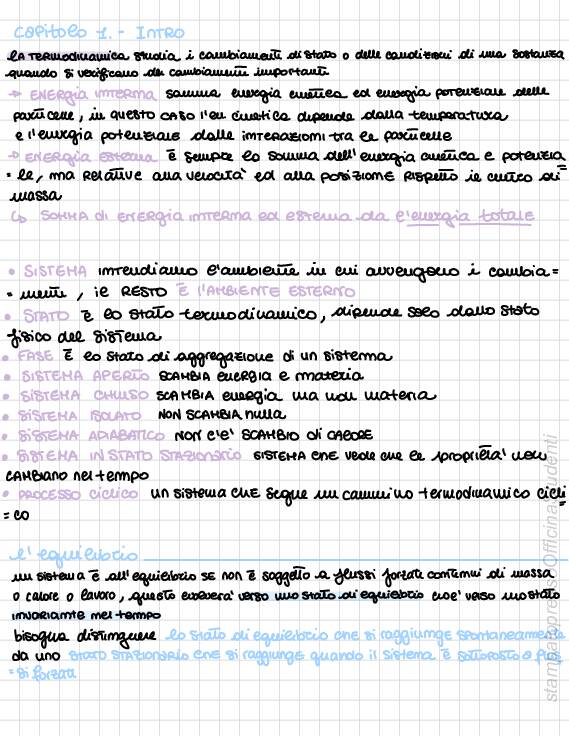 Capitolo 1. - INTRO
la TERMODINAMICA studia i cambiamenti di stato o delle condizioni di una sostanza
quando si verificano dei cambiamenti importanti
→ ENERGIA INTERNA somma energia cinetica ed energia potenziale delle
particelle, in questo caso l'en cinetica dipende dalla temperatura
e l'energia potenziale dalle interazioni tra le particelle
→ ENERGIA ESTERNA è sempre la somma dell'energia cinetica e potenzia
= le, ma relative alla velocità ed alla posizione rispetto il centro di
massa
↳ SOMMA di ENERGIA INTERNA ed esterna da l'energia totale
• SISTEMA intendiamo l'ambiente in cui avvengono i cambia =
= menti, il RESTO È l'AMBIENTE ESTERNO
• STATO È lo stato termodinamico, dipende solo dallo stato
fisico del sistema
• FASE È lo stato di aggregazione di un sistema
• SISTEMA APERTO SCAMBIA energia e materia
• SISTEMA CHIUSO SCAMBIA energia ma non materia
• SISTEMA ISOLATO NON SCAMBIA nulla
• SISTEMA ADIABATICO NON c'è SCAMBIO di CALORE
• SISTEMA IN STATO STAZIONARIO SISTEMA CHE vede che le proprietà non
CAMBIANO nel tempo
• PROCESSO CICLICO un sistema che segue un cammino termodinamico cicli
= co
l'equilibrio
un sistema è all'equilibrio se non è soggetto a flussi forzati continui di massa
o calore o lavoro, questo evolverà verso uno stato di equilibrio cioè verso uno stato
invariante nel tempo
bisogna distinguere lo stato di equilibrio che si raggiunge spontaneamente
da uno STATO STAZIONARIO che si raggiunge quando il sistema è sottoposto a flus
= si forzati
stampatopressoOfficinaStudenti